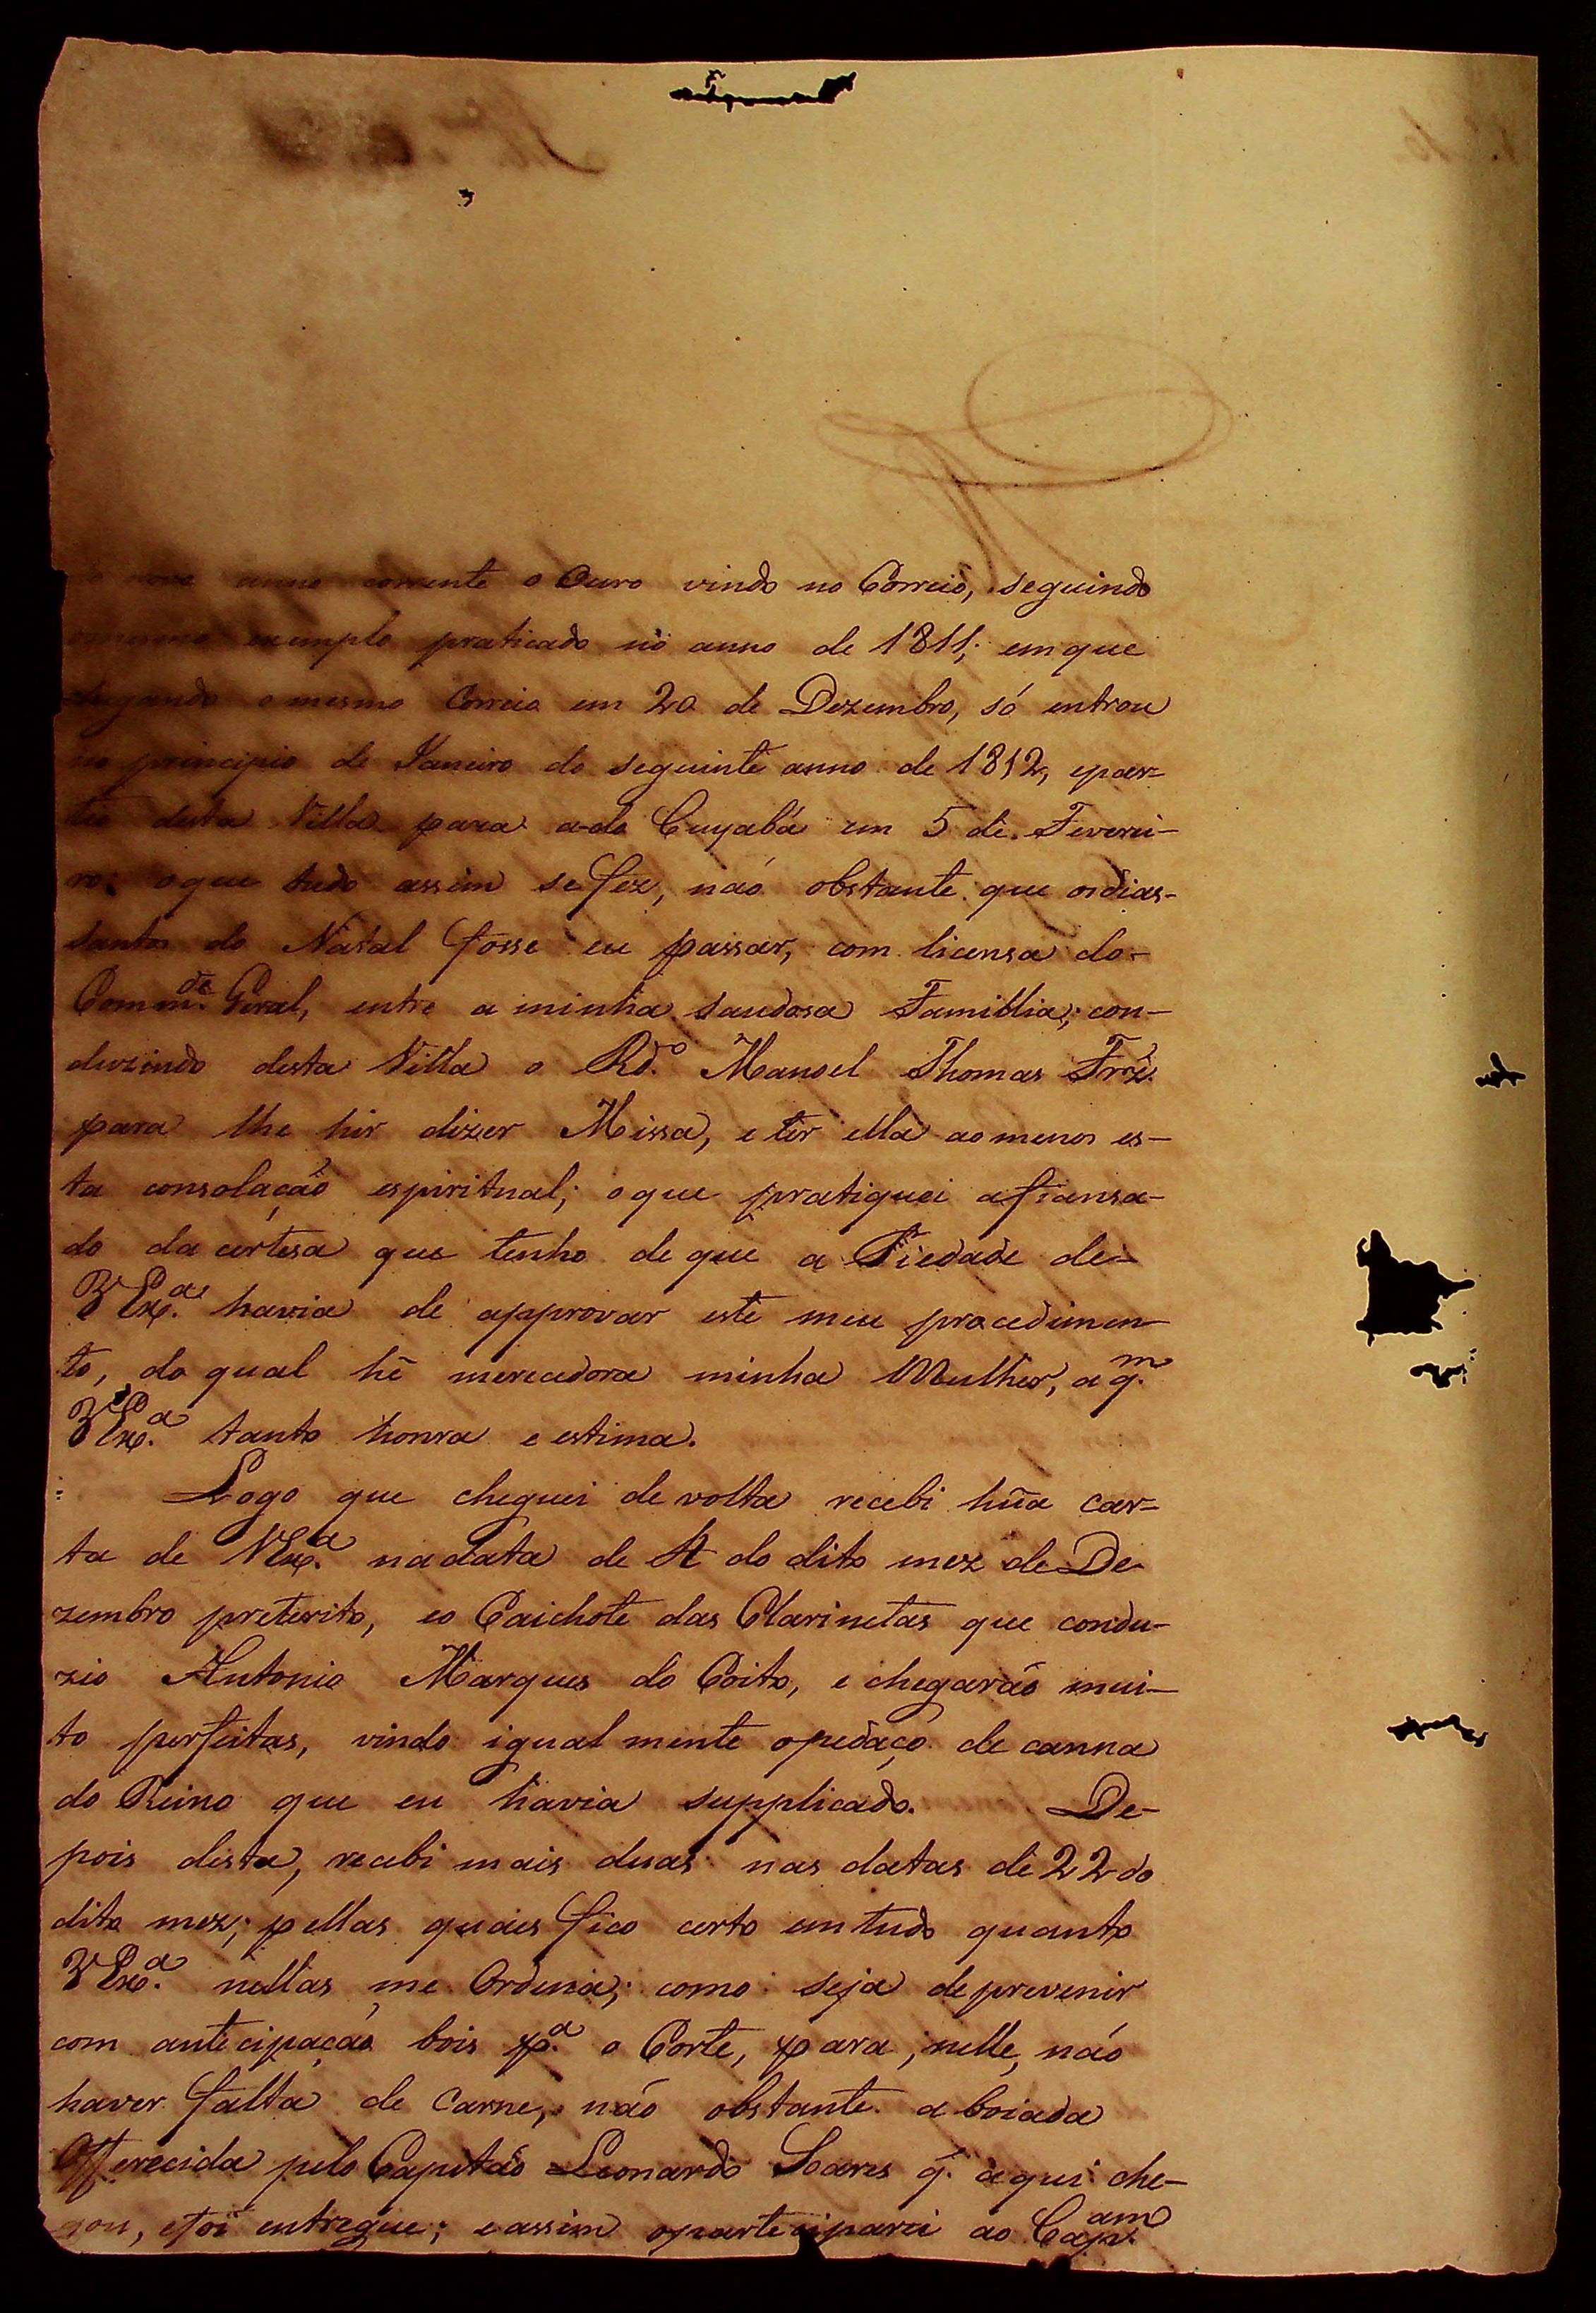 anno corrente o Ouro vindo no Correio, seguindo
exemplo praticado no anno de 1811; em que
chegando o mesmo Correio em 20 de Dezembro, só entrou
no principio de Janeiro do seguinte anno de 1812, epar=
tio desta Villa para a do Cuyabá em 5 de Feverei-
ro; oque tudo assim se fez, não obstante que os dias-
santos do Natal fosse eu passar, com licensa do-
Comm.de Geral, entre a minha saudosa Famillia; con-
duzindo desta Villa o Rd.o Manoel Thomas Frz.
para lhe hir dizer Missa, e ter ella ao menos es-
ta consolação espiritual; oque pratiquei afiansa-
do da certesa que tenho de que a Piedade de=
VEx.a havia de approvar este meu procedimen-
to, do qual hé merecedora minha Mulher, a q.m
VEx.a tanto honra e estima.
Logo que cheguei de volta recebi hũa car=
ta de VEx.a na data de do dito mez de De-
zembro preterito, eo Caichote das Clarinetas que condu-
zio Antonio Marques do Coito, e chegarão mui-
to perfeitas, vindo igual mente opedaço de canna
do Reino que eu havia supplicado. De-
pois desta, recebi mais duas nas datas de 22 do
dito mez; pellas quaes fico certo em tudo quanto
VEx.a nellas me Ordena; como seja de prevenir
com antecipação bois p.a o Corte, para, nelle, não
haver falta de Carne, não obstante a boiada
Offerecida pelo Capitão Leonardo Soares q. aqui che-
gou, efoi entregue; eassim oparteciparei ao Cap.am